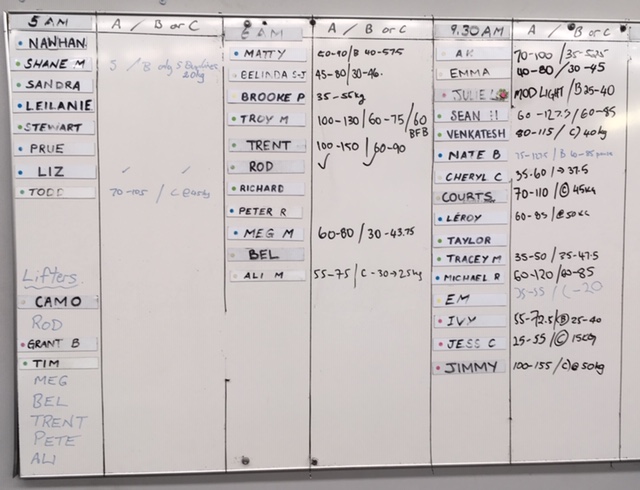 5 AM A / B or C
NAWHAN
SHANE M
SANDRA
LEILANIE
STEWART
PRUE
LIZ ✓ ✓
TODD 70-105 / C@45kg
Lifters
CAMO
ROD
GRANT B
TIM
MEG
BEL
TRENT
PETE
ALI
6 AM A / B or C
MATTY 50-90/B 40-575
BELINDA S-J 45-80/30-46.
BROOKE P 35-55kg
TROY M 100-130/60-75/60 BFB
TRENT 100-150 / 60-90
ROD ✓ ✓
RICHARD
PETER R
MEG M 60-80 / 30-43.75
BEL
ALI M 55-75/C-30→25kg
9.30AM A / B or C
AK 70-100
EMMA 40-80/30-45
JULIE MOD LIGHT/B35-40
SEAN H 60-127.5/60-85
VENKATESH 80-115/C)40kg
NATE B
CHERYL C 35-60/→37.5
COURTS 70-110/©45KG
LEROY 60-85/@50KG
TAYLOR
TRACEY M 35-50/35-47.5
MICHAEL R 60-120/60-85
EM 35-55 / C-20
IVY 55-72.5/B 25-40
JESS C 25-55/© 15kg
JIMMY 100-155/C)@50kg